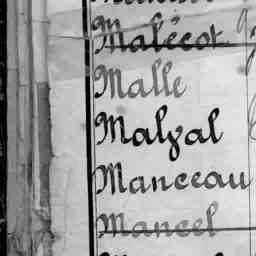 Malécot
Malle
Malzal
Manceau
Mancel